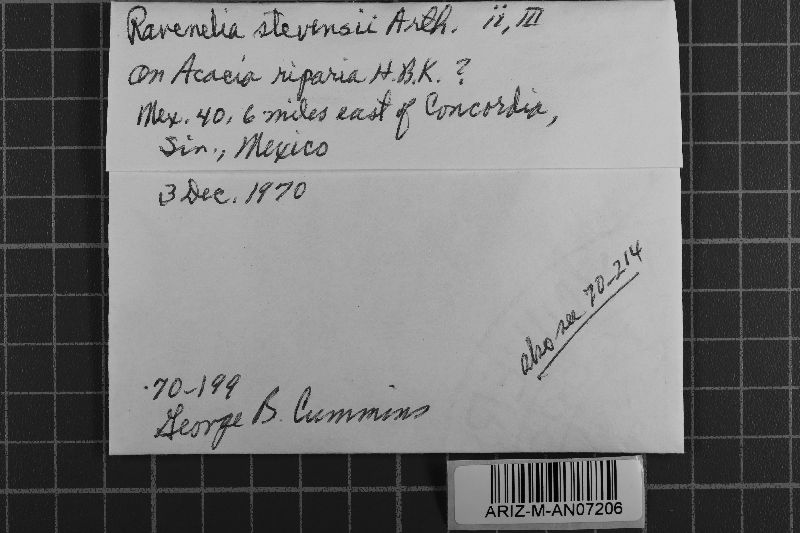 Ravenelia stevensii Arth. ii, III
on Acacia riparia H.B.K. ?
Mex. 40, 6 miles east of Concordia,
Sin., Mexico
3 Dec. 1970
also see 70-214
70-199
George B. Cummins
ARIZ-M-AN07206